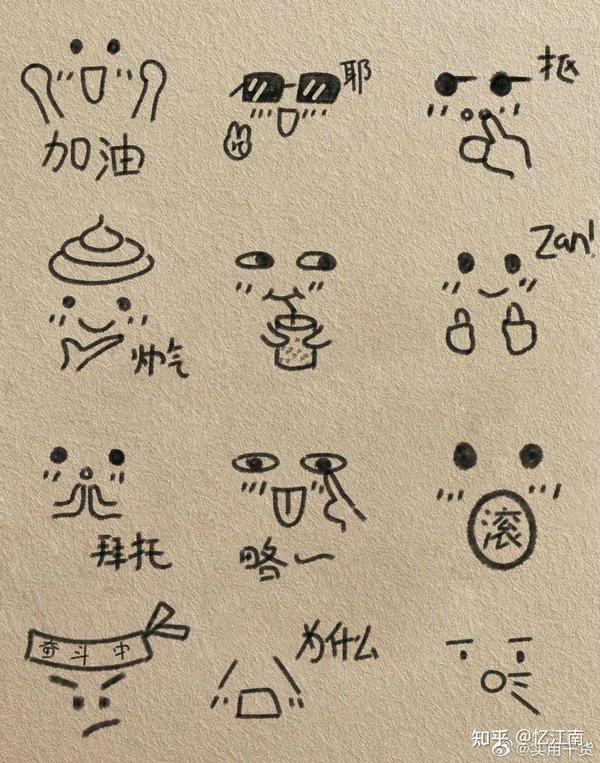 加油
耶
抠
Zan!
帅气
拜托
略~
滚
奋斗中
为什么
知乎 @忆江南
@实用干货